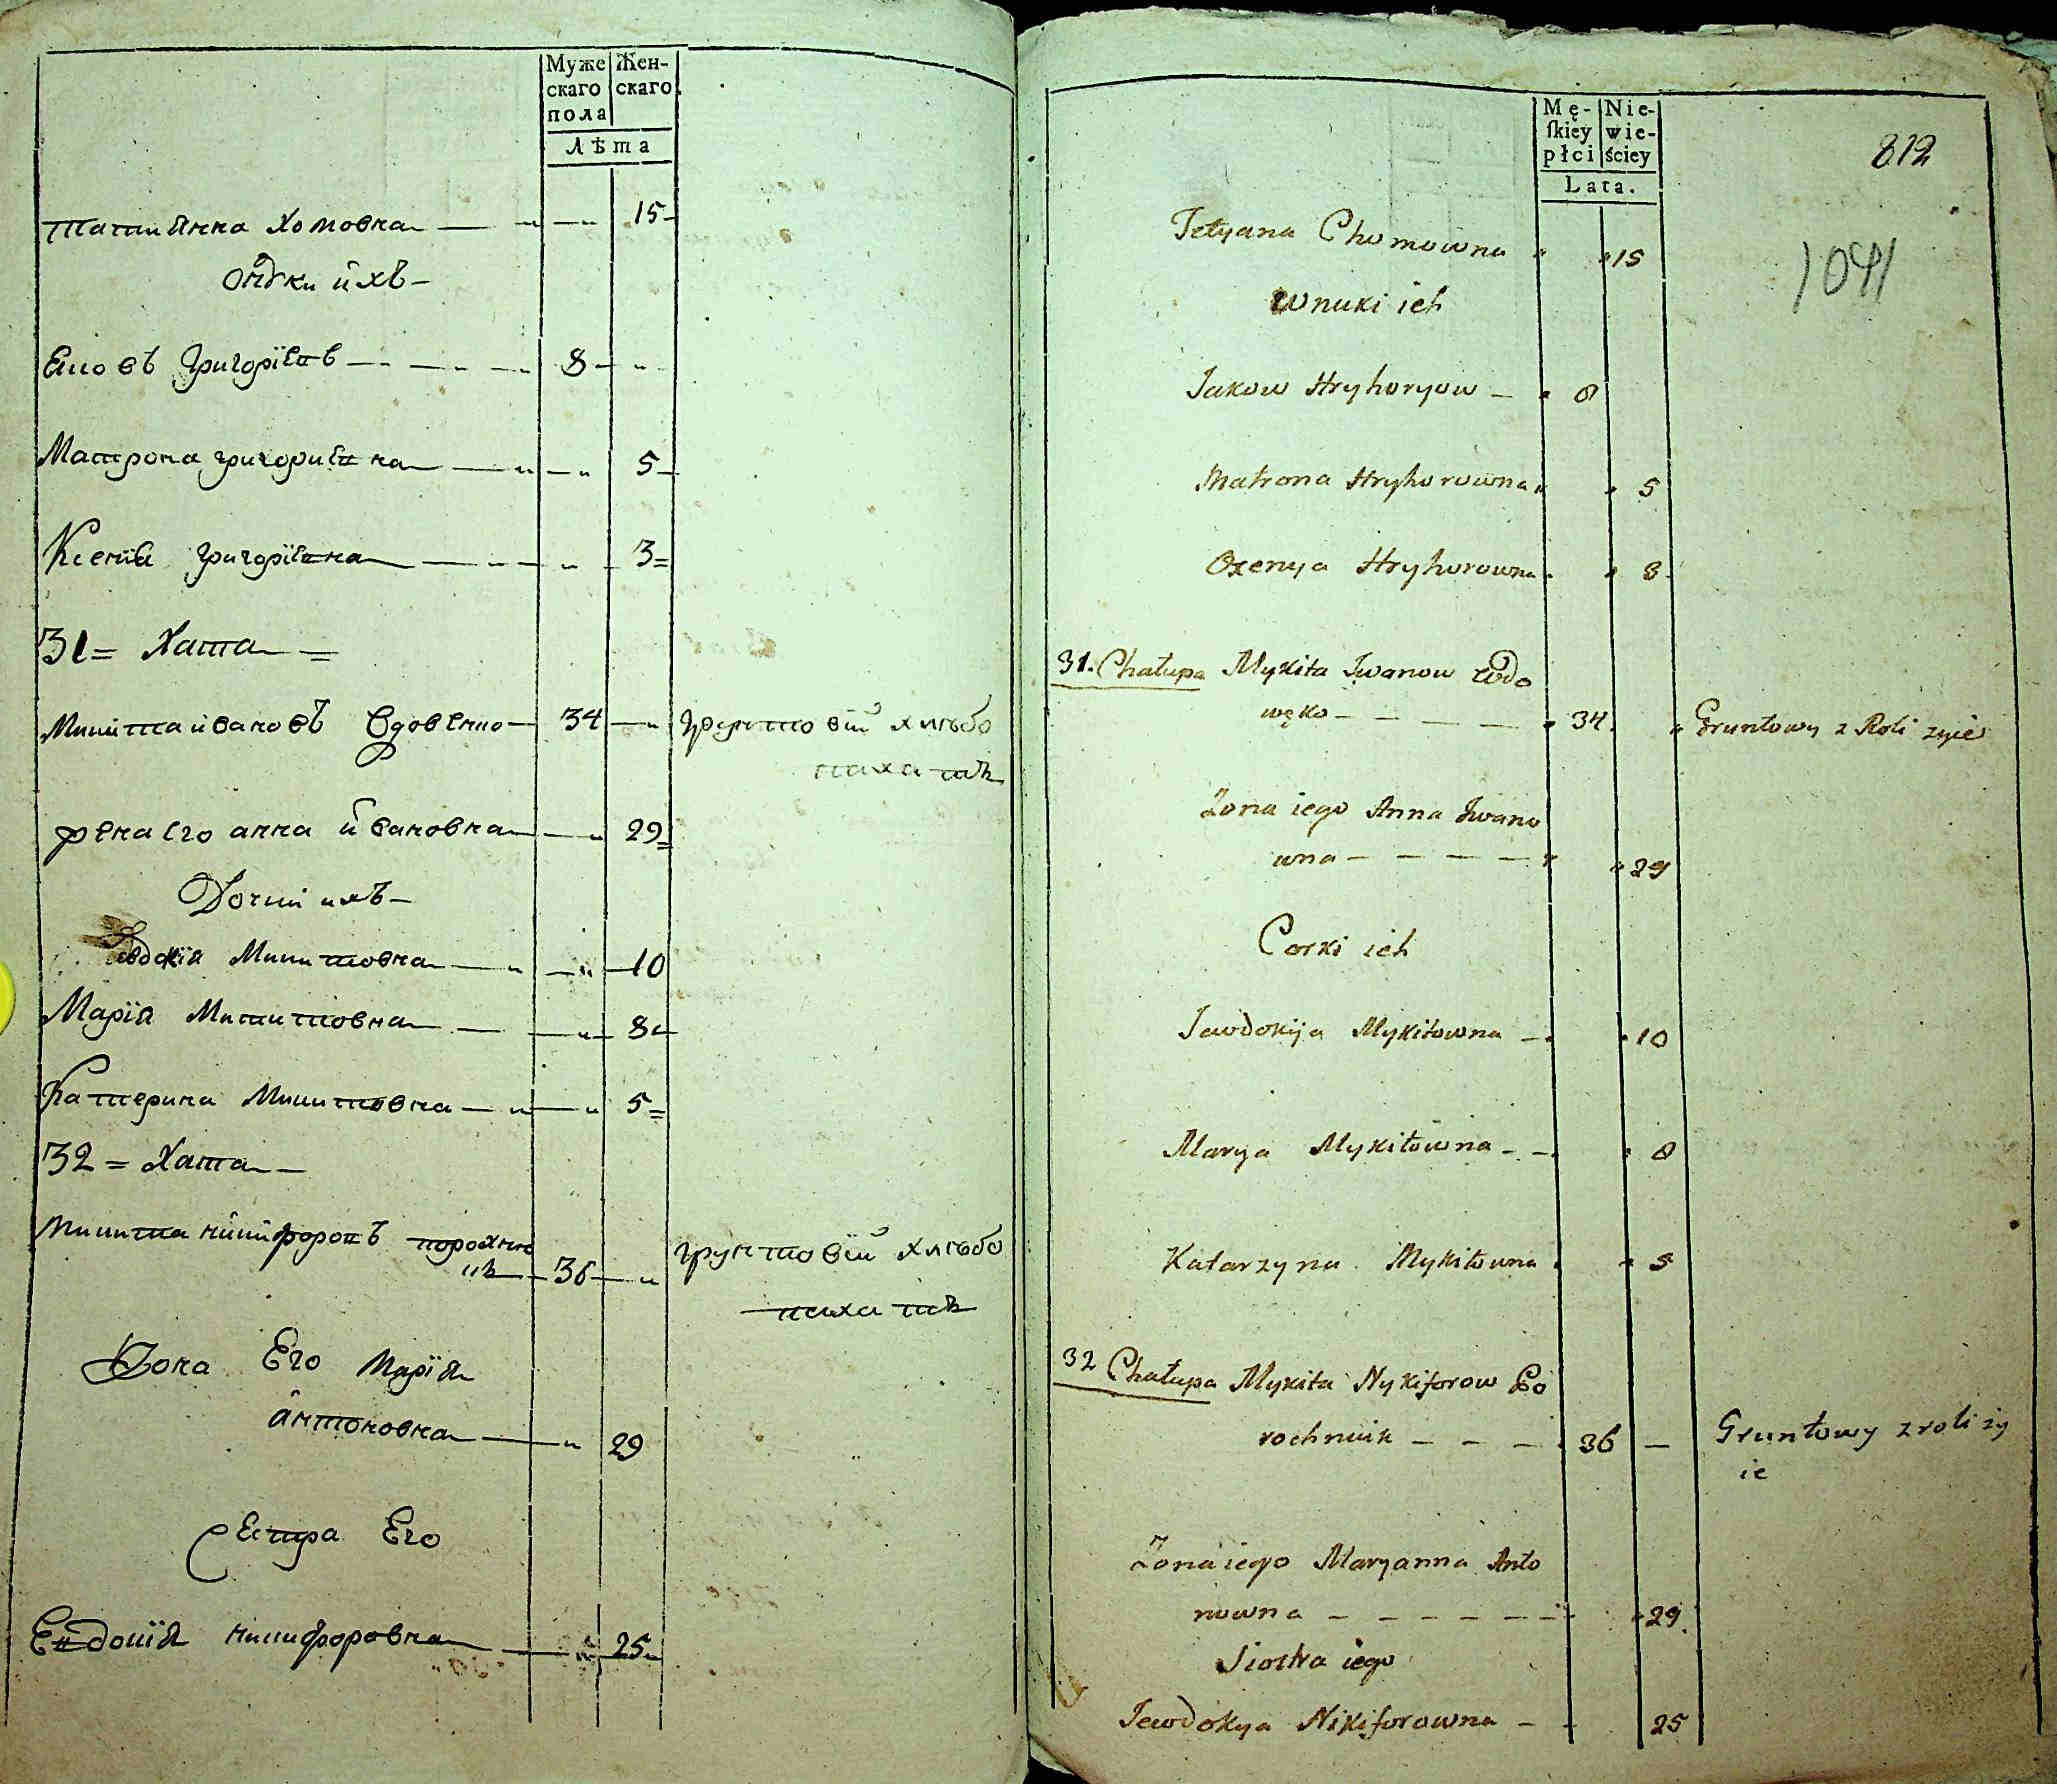 Муже Жен-
скаго скаго
пола
Лѣта
Татиянна Хомовна — „ — „ 15 —
Онуки ихъ —
Яковъ Григоріевъ — — — „ 8 — „
Матрона григориевна — „ — „ 5 —
Ксенія григоріевна — — „ — „ 3 =
31 = Хата =
Микита ивановъ Вдовенко — 34 — „ грунтовій хлѣбо
пахатъ
жена его анна ивановна — „ 29 =
Дочки ихъ —
Явдокія Микитовна — „ — „ — 10
Марія Микитовна — — „ — 8 „
Катерина Микитовна — „ — „ 5 =
32 = Хата —
Микита никифоровъ порохни
къ — 36 — „ грунтовій хлѣбо
пахатъ
Жона Его Марія
антоновна — „ 29
Сестра Его
Евдокія никифоровна — „ 25 „
Mę- Nie-
ſkiey wie-
płci ściey
Lata.
812
1041
Tetyana Chomowna „ „ 15
Wnuki ich
Jakow Hryhoryow — „ 8
Matrona Hryhorowna „ „ 5
Oxenya Hryhorowna „ „ 3
31. Chałupa Mykita Iwanow Wdo
węko — — — — „ 34. „ Gruntowy z Roli zyie
Zona iego Anna Iwano
wna — — — — „ „ 29
Corki ich
Jewdokija Mykitowna — „ „ 10
Marya Mykitowna — — „ 8
Katarzyna Mykitowna „ „ 5
32 Chałupa Mykita Nykiforow Po
rochniuk — — — 36 — Gruntowy z roli zy
ie
Zona iego Maryanna Anto
nowna — — — — — „ 29.
Siostra iego
Jewdokya Nikiforowna — — 25